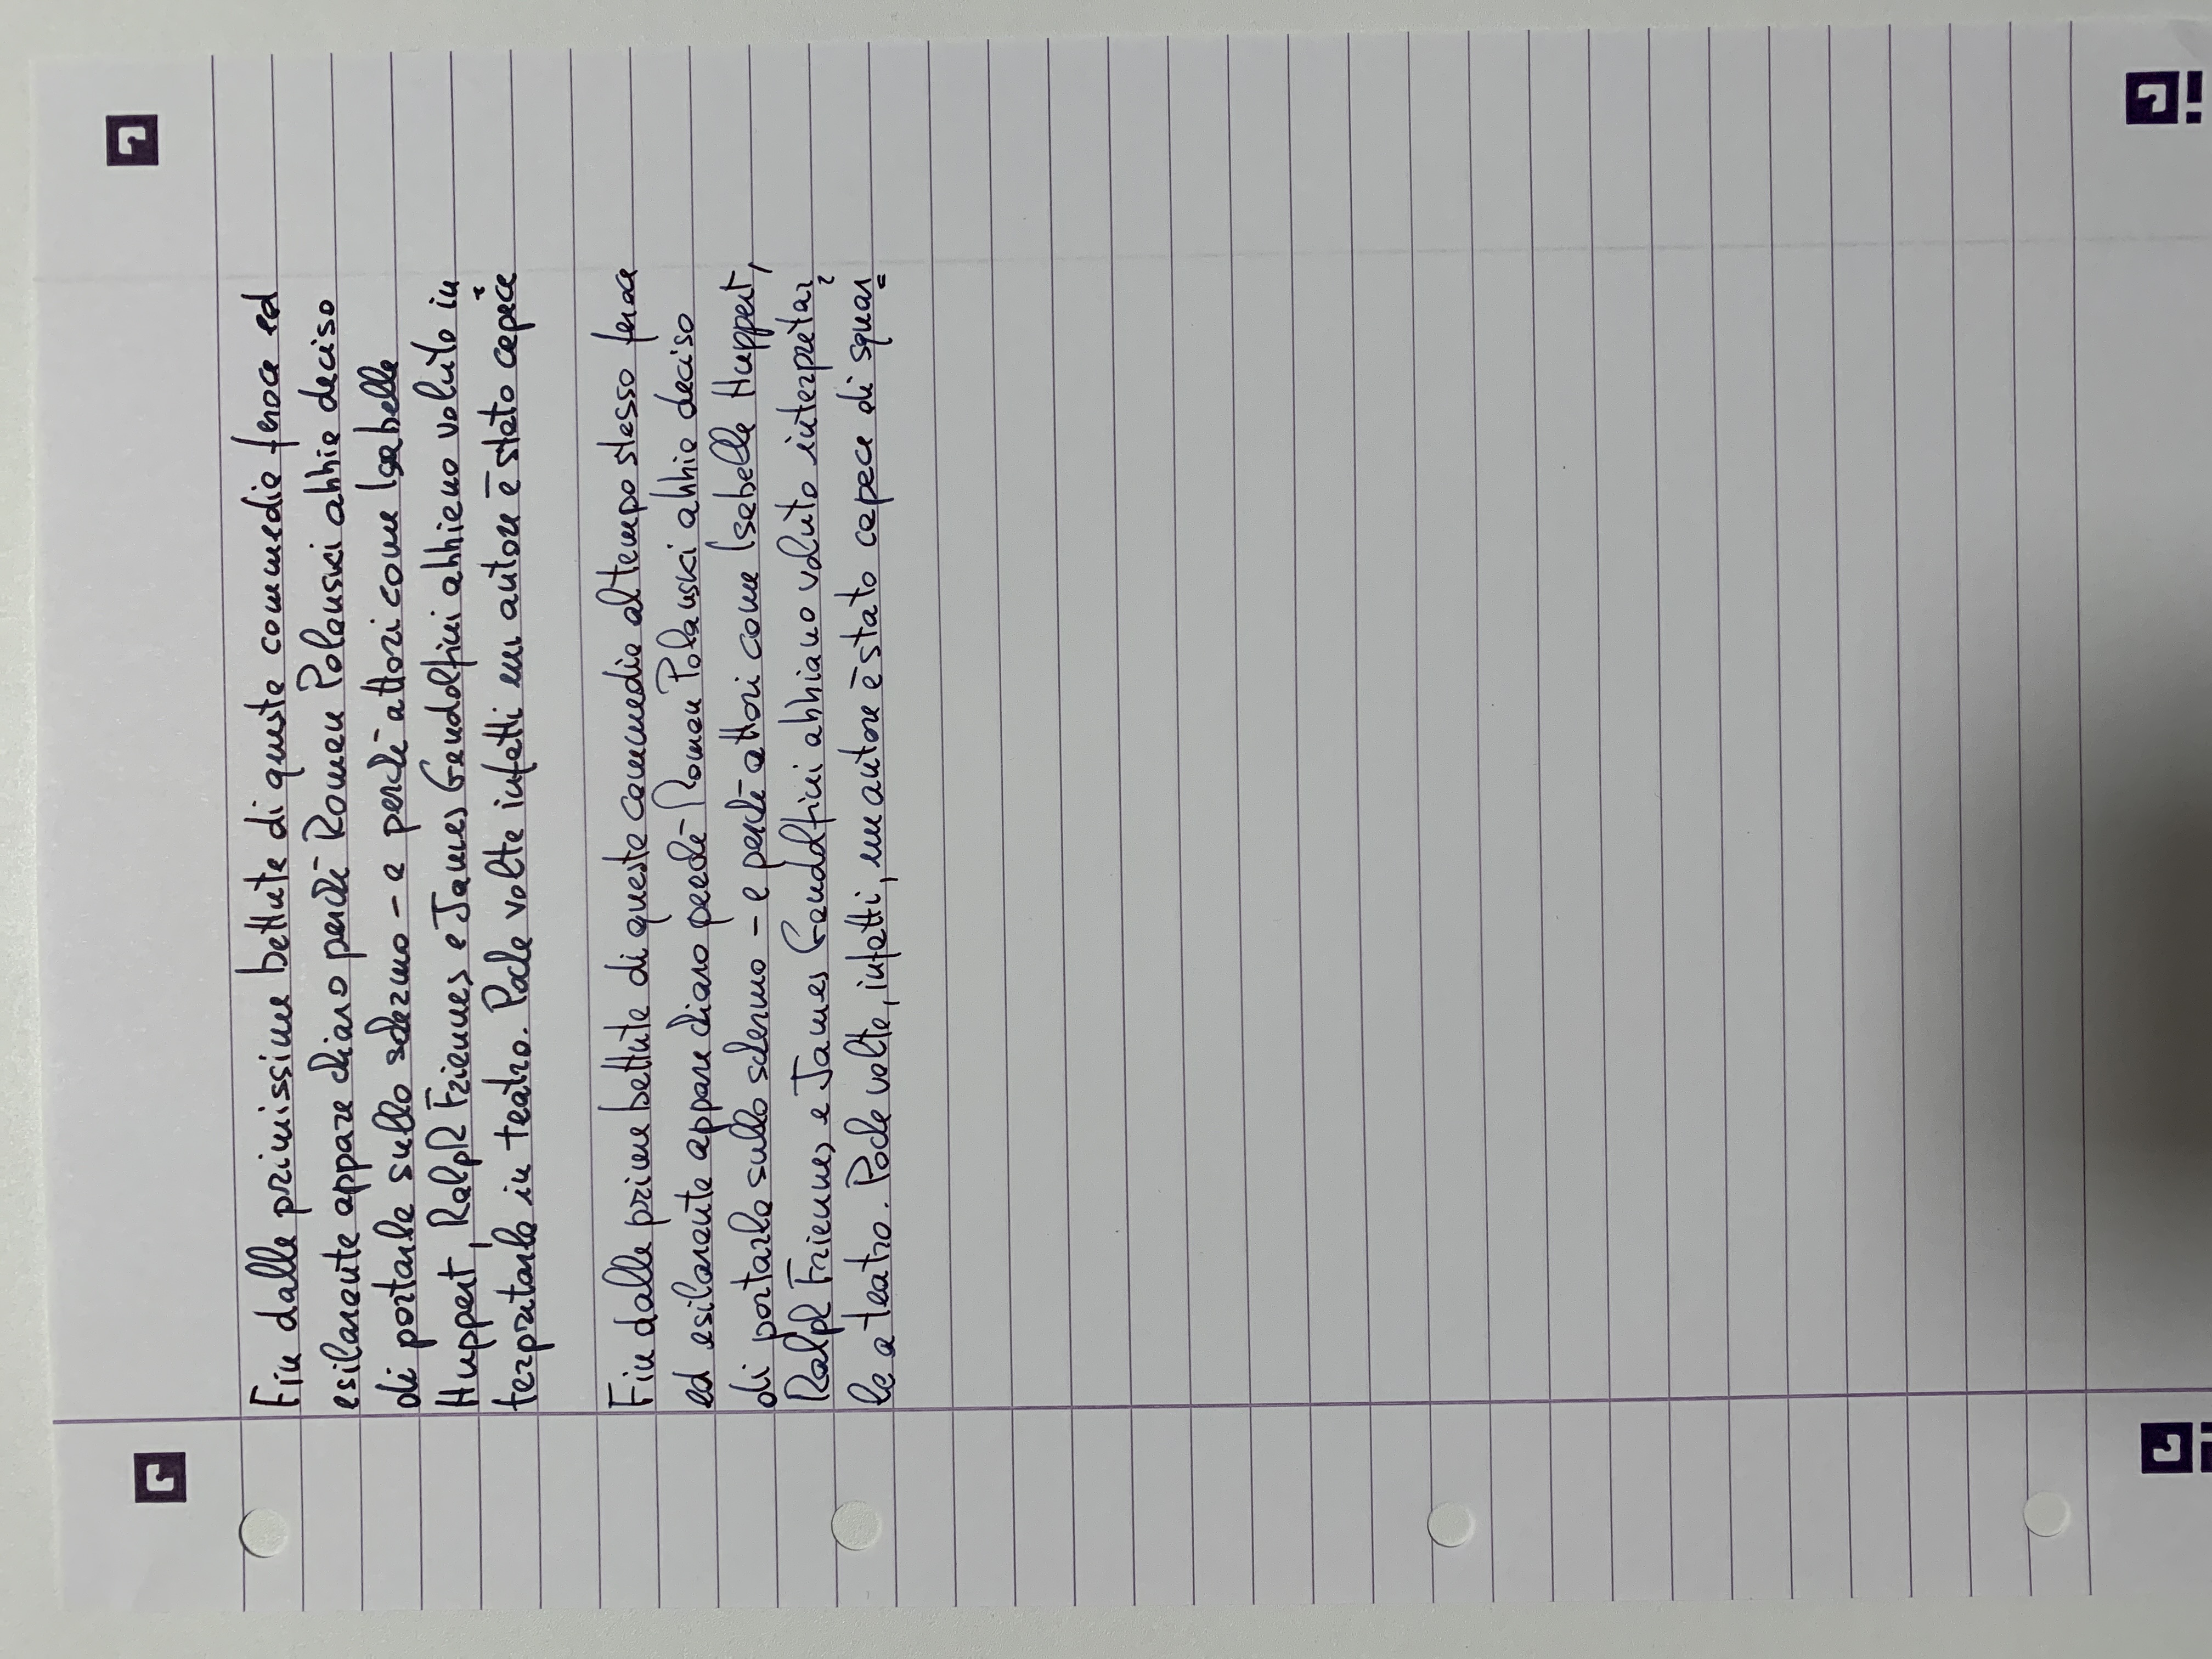 Fin dalle primissime battute di questa commedia feroce ed
esilarante appare chiaro perché Roman Polanski abbia deciso
di portarla sullo schermo - e perché attori come Isabelle
Huppert, Ralph Friennes e James Gandolfini abbiano voluto in
terpretarla in teatro. Poche volte infatti un autore è stato capace
Fin dalle prime battute di questa commedia al tempo stesso feroce
ed esilarante appare chiaro perché Roman Polanski abbia deciso
di portarla sullo schermo - e perché attori come Isabelle Huppert,
Ralph Friennes e James Gandolfini abbiano voluto interpretar
la a teatro. Poche volte, infatti, un autore è stato capace di squar=